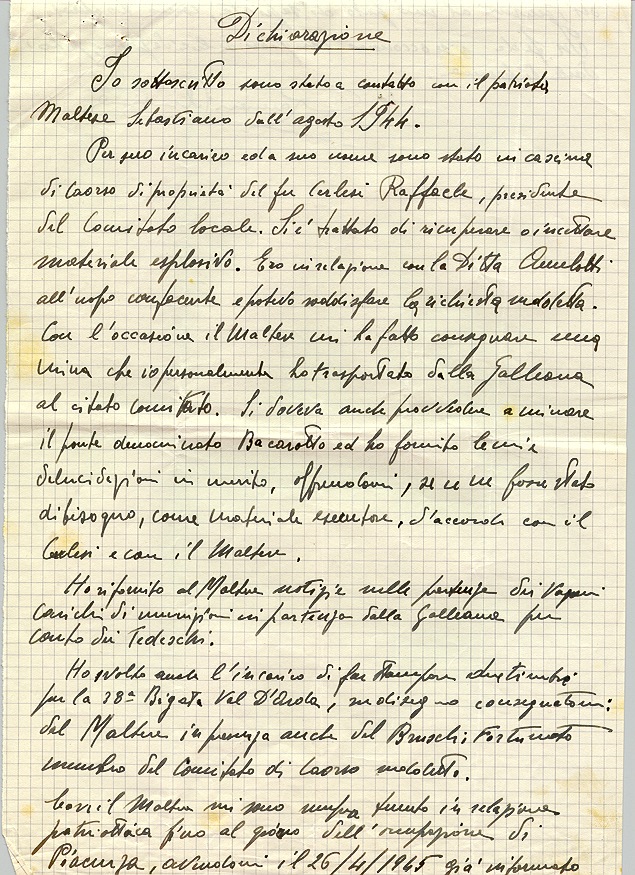 Dichiarazione
Io sottoscritto sono stato a contatto con il patriota
Maltese Sebastiano dall'agosto 1944.
Per suo incarico ed a suo nome sono stato in cascina
di Caorso di proprietà del fu Cerlesi Raffaele, presidente
del Comitato locale. Si è trattato di ricuperare o incettare
materiale esplosivo. Ero in relazione con la Ditta
all'uopo confacente e potevo soddisfare la richiesta suddetta.
Con l'occasione il Maltese mi ha fatto consegnare una
mina che io personalmente ho trasportato dalla Galleana
al citato comitato. Si doveva anche provvedere a minare
il ponte denominato Bacarotto ed ho fornito le mie
delucidazioni in merito, offrendomi, se ve ne fosse stato
di bisogno, come materiale esecutore, d'accordo con il
Cerlesi e con il Maltese.
Ho rifornito al Maltese notizie sulle partenze dei Vagoni
carichi di munizioni in partenza dalla Galleana per
conto dei Tedeschi.
Ho svolto anche l'incarico di far stampare due timbri
per la 38ª Bigata Val D'Arda, su disegno consegnatomi
dal Maltese in presenza anche del Bruschi Fortunato
membro del Comitato di Caorso suddetto.
Con il Maltese mi sono sempre tenuto in relazione
patriottica fino al giorno dell'occupazione di
Piacenza, avendomi il 26/4/1945 già informato